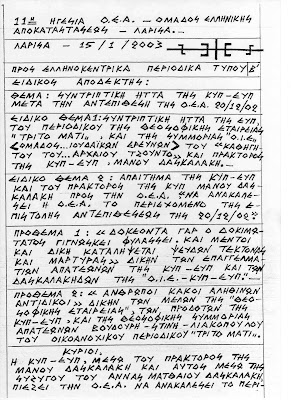 11η ΗΓΕΣΙΑ Ο.Ε.Α. – ΟΜΑΔΟΣ ΕΛΛΗΝΙΚΗΣ
ΑΠΟΚΑΤΑΣΤΑΣΕΩΣ – ΛΑΡΙΣΑ...
ΛΑΡΙΣΑ – 15/1/2003
ΠΡΟΣ ΕΛΛΗΝΟΚΕΝΤΡΙΚΑ ΠΕΡΙΟΔΙΚΑ ΤΥΠΟΥ Β'
ΕΙΔΙΚΟΣ ΑΠΟΔΕΚΤΗΣ:
ΘΕΜΑ: ΣΥΝΤΡΙΠΤΙΚΗ ΗΤΤΑ ΤΗΣ ΚΥΠ-ΕΥΠ
ΜΕΤΑ ΤΗΝ ΑΝΤΕΠΙΘΕΣΗ ΤΗΣ Ο.Ε.Α. 20/12/02
ΕΙΔΙΚΟ ΘΕΜΑ 1: ΣΥΝΤΡΙΠΤΙΚΗ ΗΤΤΑ ΤΗΣ ΕΥΠ,
ΤΟΥ ΠΕΡΙΟΔΙΚΟΥ ΤΗΣ ΘΕΟΣΟΦΙΚΗΣ ΕΤΑΙΡΕΙΑΣ
"ΤΡΙΤΟ ΜΑΤΙ", ΚΑΙ ΤΗΣ ΣΥΜΜΟΡΙΑΣ "Ο.Ι.Ε.
<ΟΜΑΔΟΣ... ΙΟΥΔΑΙΚΩΝ ΕΡΕΥΝΩΝ> ΤΟΥ "ΚΑΘΗΓΗ-
ΤΟΥ ΤΟΥ... ΑΡΧΑΙΟΥ ΤΖΟΥΝΤΟ" ΚΑΙ ΠΡΑΚΤΟΡΟΣ
ΤΗΣ ΚΥΠ-ΕΥΠ, ΜΑΝΟΥ ΔΑΣΚΑΛΑΚΗ.
ΕΙΔΙΚΟ ΘΕΜΑ 2: ΑΠΑΙΤΗΜΑ ΤΗΣ ΚΥΠ-ΕΥΠ
ΚΑΙ ΤΟΥ ΠΡΑΚΤΟΡΟΣ ΤΗΣ ΚΥΠ ΜΑΝΟΥ ΔΑΣ-
ΚΑΛΑΚΗ ΠΡΟΣ ΤΗΝ Ο.Ε.Α. "ΝΑ ΑΝΑΚΑΛΕ-
ΣΕΙ Η Ο.Ε.Α. ΤΟ ΠΕΡΙΕΧΟΜΕΝΟ ΤΗΣ Ε-
ΠΙΣΤΟΛΗΣ ΑΝΤΕΠΙΘΕΣΕΩΣ ΤΗΣ 20/12/02"
ΠΡΟΘΕΜΑ 1: "ΔΟΚΕΟΝΤΑ ΓΑΡ Ο ΔΟΚΙΜΩ-
ΤΑΤΟΣ ΓΙΓΝΩΣΚΕΙ ΦΥΛΑΣΣΕΙ. ΚΑΙ ΜΕΝΤΟΙ
ΚΑΙ ΔΙΚΗ ΚΑΤΑΛΗΨΕΤΑΙ ΨΕΥΔΩΝ ΤΕΚΤΟΝΑΣ
ΚΑΙ ΜΑΡΤΥΡΑΣ" ΔΙΚΗΝ ΤΩΝ ΕΠΑΓΓΕΛΜΑ-
ΤΙΩΝ ΑΠΑΤΕΩΝΩΝ ΤΗΣ ΚΥΠ-ΕΥΠ ΚΑΙ ΤΩΝ
ΔΑΣΚΑΛΑΚΗΔΩΝ ΤΗΣ "Ο.Ι.Ε.-ΚΥΠ-ΕΥΠ".
ΠΡΟΘΕΜΑ 2: "ΑΝΘΡΩΠΟΙ ΚΑΚΟΙ ΑΛΗΘΙΝΩΝ
ΑΝΤΙΔΙΚΟΙ" ΔΙΚΗΝ ΤΩΝ ΜΕΛΩΝ ΤΗΣ "ΘΕΟ-
ΣΟΦΙΚΗΣ ΕΤΑΙΡΕΙΑΣ", ΤΩΝ ΠΡΟΔΟΤΩΝ ΤΗΣ
ΚΥΠ-ΕΥΠ, ΚΑΙ ΤΗΣ ΘΕΟΣΟΦΙΚΗΣ ΣΥΜΜΟΡΙΑΣ
ΑΠΑΤΕΩΝΩΝ ΒΟΥΔΟΥΡΗ-ΛΙΑΚΟΠΟΥΛΟΥ
ΤΟΥ ΟΙΚΟΑΝΟΧΙΚΟΥ ΠΕΡΙΟΔΙΚΟΥ "ΤΡΙΤΟ ΜΑΤΙ".
ΚΥΡΙΟΙ.
Η ΚΥΠ-ΕΥΠ, ΜΕΣΩ ΤΟΥ ΠΡΑΚΤΟΡΟΣ ΤΗΣ
ΜΑΝΟΥ ΔΑΣΚΑΛΑΚΗ ΚΑΙ ΑΥΤΟΣ ΜΕΣΩ ΤΗΣ
ΣΥΖΥΓΟΥ ΤΟΥ ΑΝΝΑΣ ΜΑΤΘΑΙΟΥ ΔΑΣΚΑΛΑΚΗ,
ΠΙΕΖΕΙ ΤΗΝ Ο.Ε.Α. ΝΑ ΑΝΑΚΑΛΕΣΕΙ ΤΟ ΠΕΡΙ-